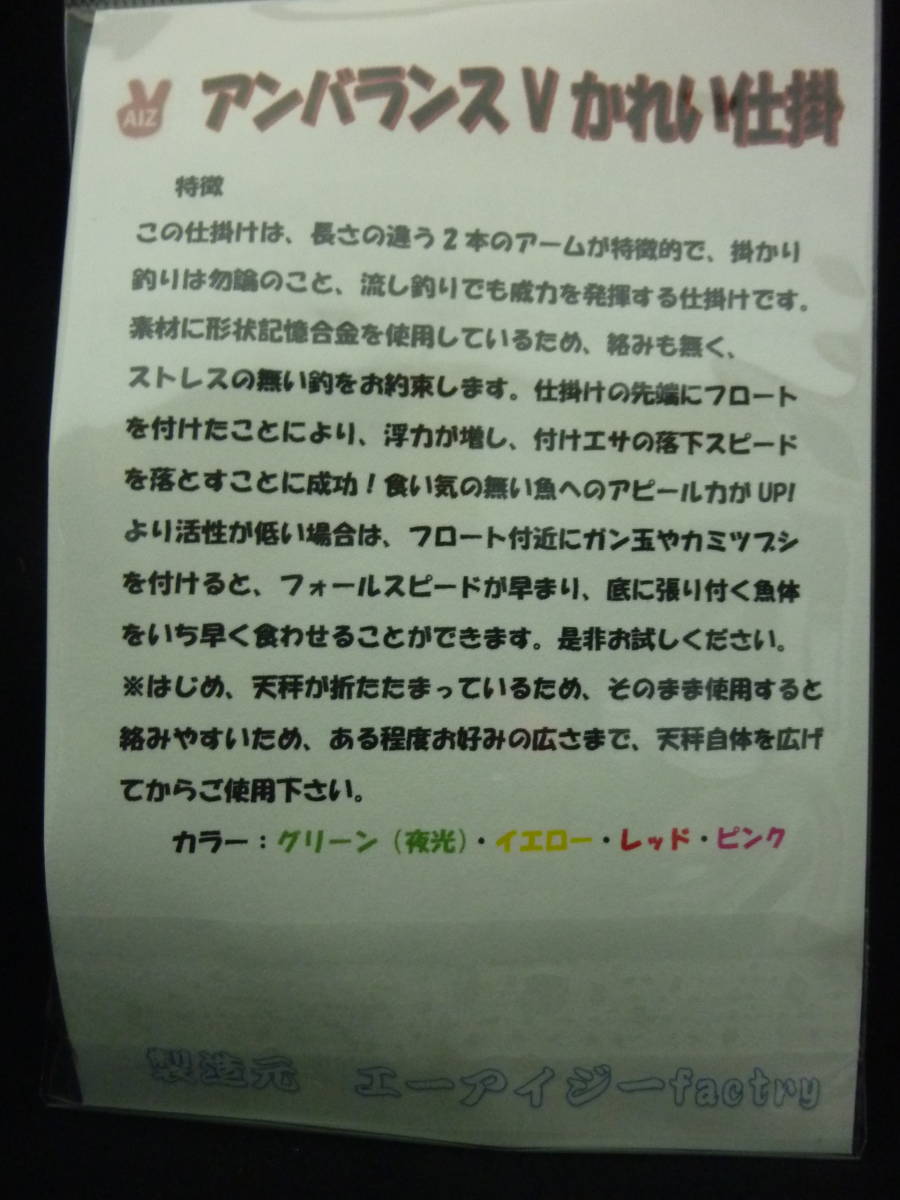 AIZ
アンバランスVかれい仕掛
特徴
この仕掛けは、長さの違う2本のアームが特徴的で、掛かり
釣りは勿論のこと、流し釣りでも威力を発揮する仕掛けです。
素材に形状記憶合金を使用しているため、絡みも無く、
ストレスの無い釣をお約束します。仕掛けの先端にフロート
を付けたことにより、浮力が増し、付けエサの落下スピード
を落とすことに成功！食い気の無い魚へのアピール力がUP!
より活性が低い場合は、フロート付近にガン玉やカミツブシ
を付けると、フォールスピードが早まり、底に張り付く魚体
をいち早く食わせることができます。是非お試しください。
※はじめ、天秤が折たたまっているため、そのまま使用すると
絡みやすいため、ある程度お好みの広さまで、天秤自体を広げ
てからご使用下さい。
カラー：グリーン（夜光）・イエロー・レッド・ピンク
製造元 エーアイジーfactry